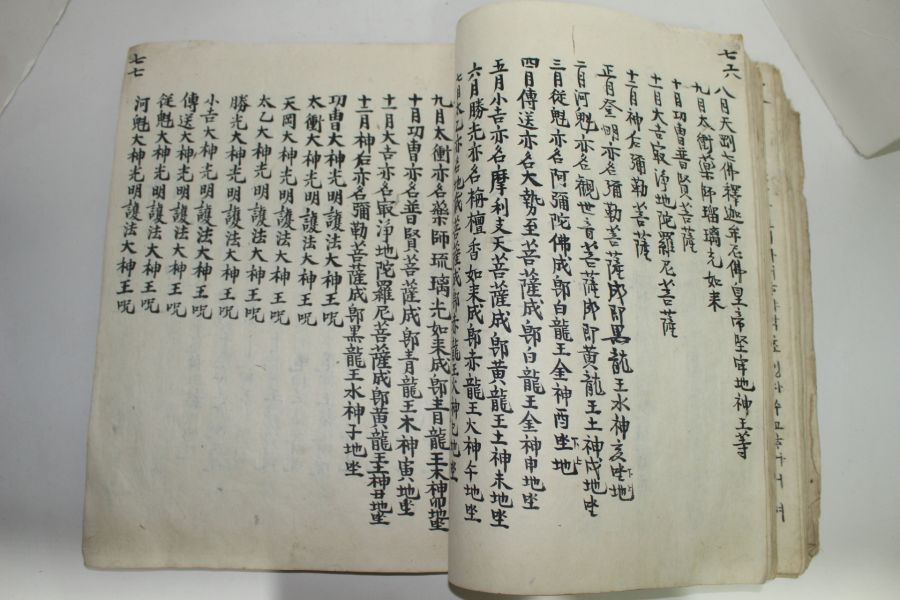 七六
八月天罡七佛釋迦牟尼佛皇帝堅牢地神王等
九月太衝藥師瑠璃光如来
十月功曺普賢菩薩
十一月大吉㝡淨地陀羅尼菩薩
十二月神后彌勒菩薩
正月登明亦名彌勒菩薩成郎黒龍王水神亥坐地
二月河魁亦名觀世音菩薩成郎黄龍王土神戌地坐
三月從魁亦名阿彌陀佛成郎白龍王金神酉坐地
四月傳送亦名大勢至菩薩成郎白龍王金神申地坐
五月小吉亦名摩利支天菩薩成郎黄龍王土神未地坐
六月勝光亦名栴檀香如来成郎赤龍王火神午地坐
七七
九月太衝亦名藥師琉璃光如来成郎青龍王木神卯地坐
十月功曺亦名普賢菩薩成郎青龍王木神寅地坐
十一月大吉亦名㝡淨地陀羅尼菩薩成郎黄龍王土神丑地坐
十二月神后亦名彌勒菩薩成郎黒龍王水神子地坐
功曺大神光明護法大神王呪
太衝大神光明護法大神王呪
天罡大神光明護法大神王呪
太乙大神光明護法大神王呪
勝光大神光明護法大神王呪
小吉大神光明護法大神王呪
傳送大神光明護法大神王呪
從魁大神光明護法大神王呪
河魁大神光明護法大神王呪